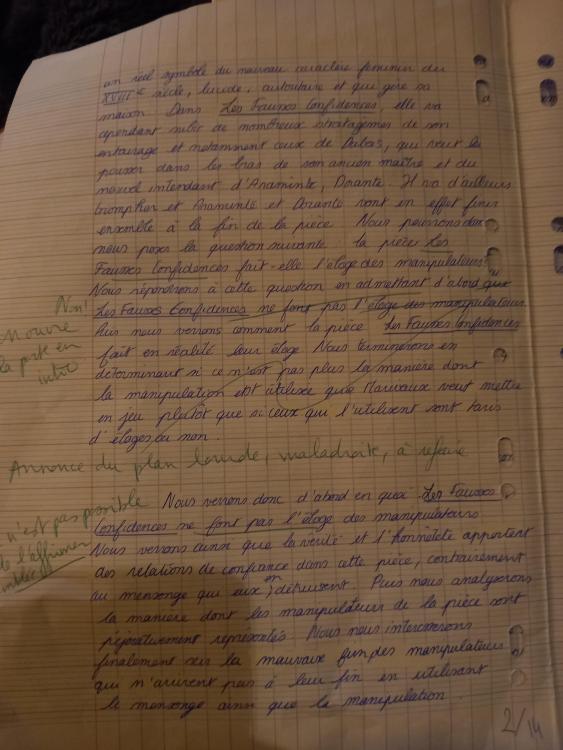 un réel symbole du nouveau caractère féminin du
XVIIIe siècle, lucide, autoritaire et qui gère sa
maison. Dans Les Fausses Confidences, elle va
cependant subir de nombreux stratagèmes de son
entourage et notamment ceux de Dubois, qui veut la
pousser dans les bras de son ancien maître et du
nouvel intendant d'Araminte, Dorante. Il va d'ailleurs
triompher et Araminte et Dorante vont en effet finir
ensemble à la fin de la pièce. Nous pouvons donc
nous poser la question suivante : la pièce Les
Fausses Confidences fait-elle l'éloge des manipulateurs?
Nous répondrons à cette question en admettant d'abord que
Non!
Les Fausses Confidences ne font pas l'éloge des manipulateurs.
on ouvre
Puis nous verrons comment la pièce Les Fausses Confidences
la piste en
fait en réalité leur éloge. Nous terminerons en
intro
déterminant si ce n'est pas plus la manière dont
la manipulation est utilisée que Marivaux veut mettre
en jeu plutôt que si ceux qui l'utilisent sont
d'éloges ou non.
Annonce du plan lourde, maladroite, à refaire
Nous verrons donc d'abord en quoi Les Fausses
n'est pas possible
Confidences ne font pas l'éloge des manipulateurs.
de l'affirmer
Nous verrons ainsi que la vérité et l'honnêteté apportent
des relations de confiance dans cette pièce, contrairement
au mensonge qui eux en détruisent. Puis nous analyserons
la manière dont les manipulateurs de la pièce sont
péjorativement représentés. Nous nous intéresserons
finalement sur la mauvaise fin des manipulateurs
qui n'arrivent pas à leur fin en utilisant
le mensonge ainsi que la manipulation.
2/14